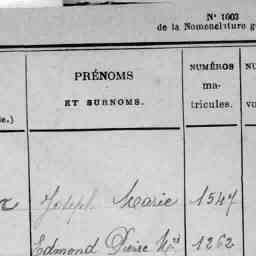 N° 1603
de la Nomenclature g
PRÉNOMS
ET SURNOMS.
NUMÉROS
ma-
tricules.
NU
vo
le.)
Joseph Marie 1547
Edmond Désiré 1262